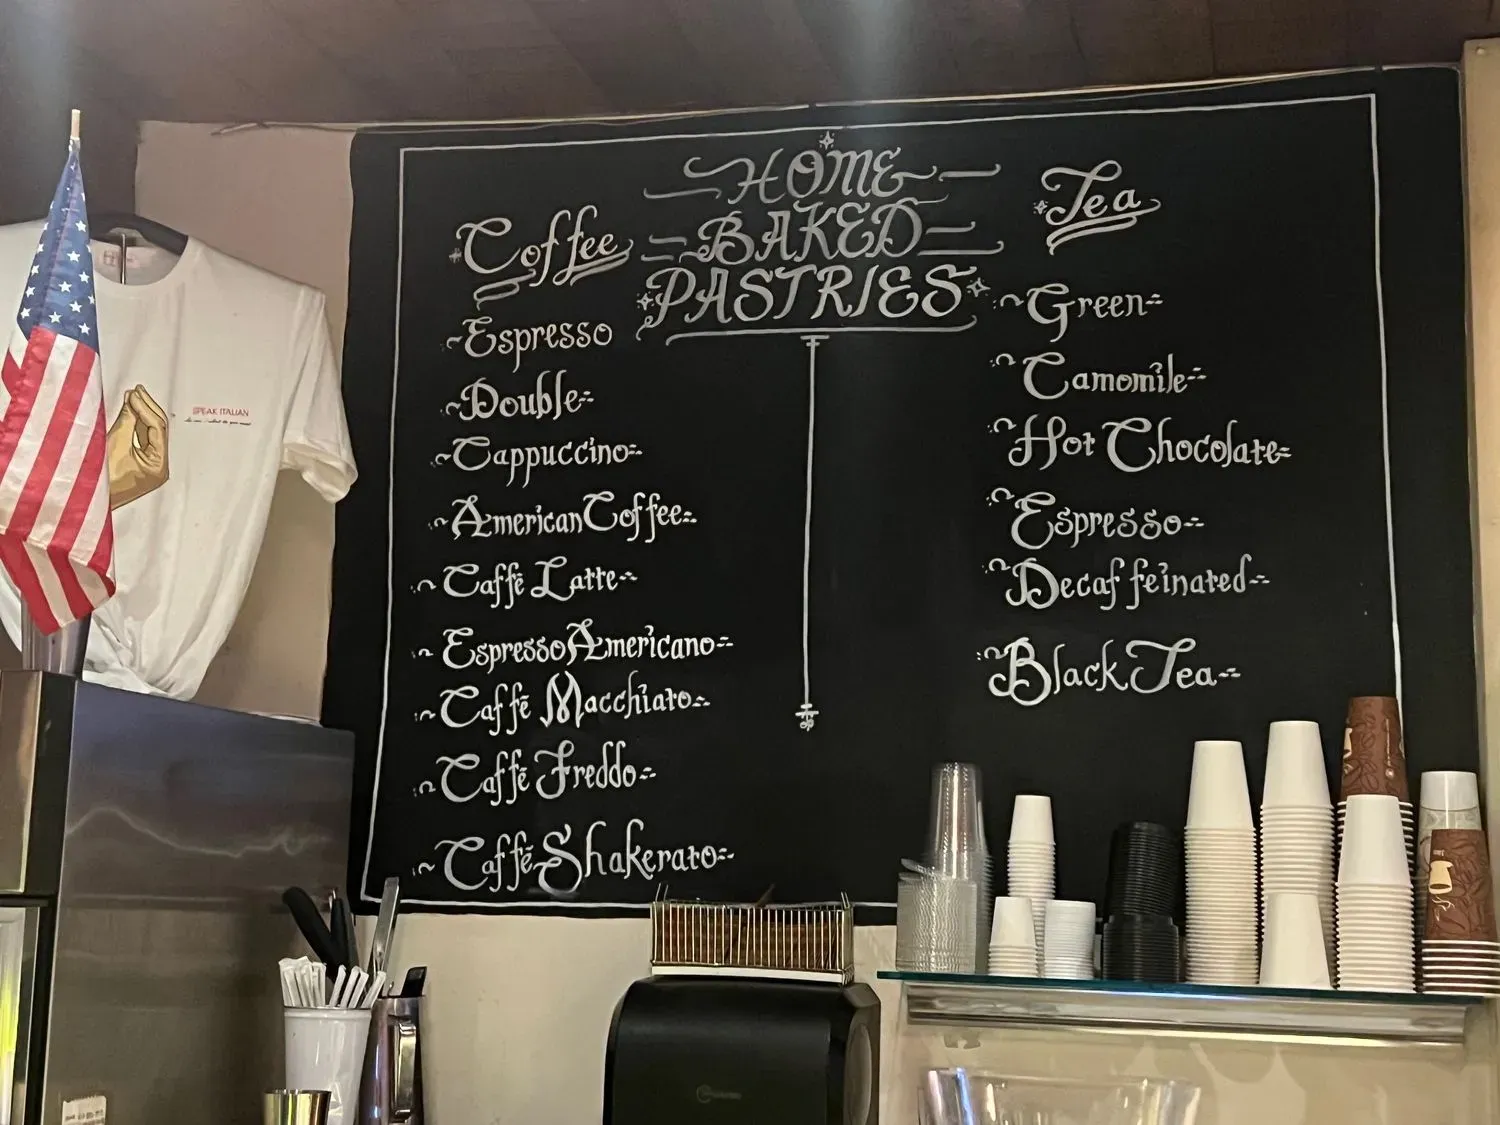 HOME
BAKED
PASTRIES
Coffee
Espresso
Double
Cappuccino
American Coffee
Caffē Latte
Espresso Americano
Caffē Macchiato
Caffē Freddo
Caffē Shakerato
Tea
Green
Camomile
Hot Chocolate
Espresso
Decaffeinated
Black Tea
SPEAK ITALIAN